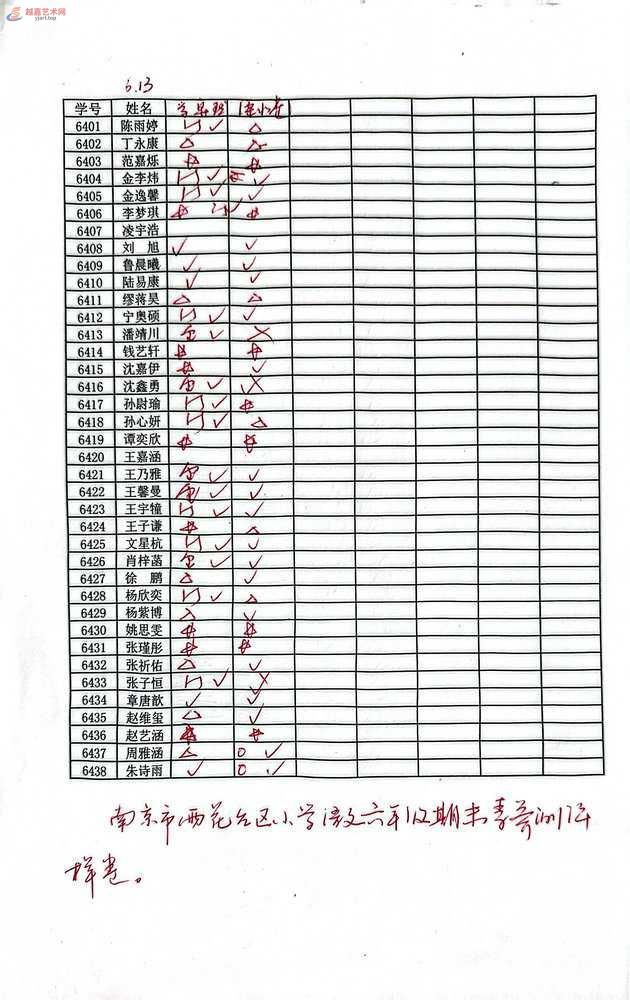 越嘉艺术网
yjart.top
6.13
学号 姓名
6401 陈雨婷 ✓ △
6402 丁永康 △ △
6403 范嘉烁 ☆ ☆
6404 金李炜 ✓ ✓
6405 金逸馨 ✓ ✓
6406 李梦琪 ☆ ✓ ☆
6407 凌宇浩
6408 刘 旭 ✓ ✓
6409 鲁晨曦 ✓ ✓
6410 陆易康 ✓ ✓
6411 缪蒋昊 △ △
6412 宁奥硕 ✓ ✓
6413 潘靖川 ✓ ✗
6414 钱艺轩 ☆ ☆
6415 沈嘉伊 ☆ ✓
6416 沈鑫勇 ✓ ✗
6417 孙尉瑜 ✓ ☆
6418 孙心妍 ✓ △
6419 谭奕欣 ☆ ☆
6420 王嘉涵
6421 王乃雅 ✓ ✓
6422 王馨曼 ✓ ✓
6423 王宇犝 ✓ ✓
6424 王子谦 ☆ △
6425 文星杭 ✓ ✓
6426 肖梓菡 ✓ ✓
6427 徐 鹏 △ ✓
6428 杨欣奕 ✓ △
6429 杨紫博 ✓
6430 姚思雯 ☆ ☆
6431 张瑾彤 ☆ ☆
6432 张祈佑 △ ✓
6433 张子恒 ✓ ✗
6434 章唐歆 ✓ ✓
6435 赵维玺 △ ✓
6436 赵艺涵 ☆ ☆
6437 周雅涵 △ 0 ✓
6438 朱诗雨 ✓ 0 ✓
南京市雨花台区小学语文六年级期末
样卷。